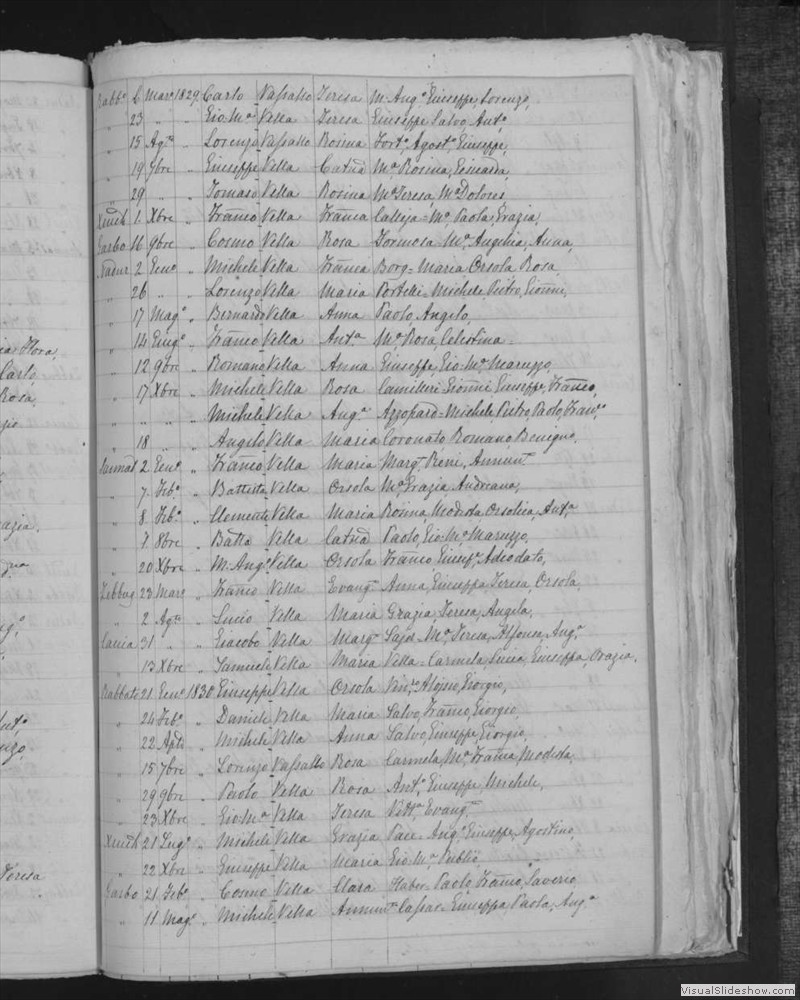 Rabbo 6 Maro 1829 Carlo Vassallo Teresa M. Ango Giuseppe, Lorenzo,
" 23 " " " Gio Ma Vella Teresa Giuseppe Salvo, Anto,
" 15 Agto " Lorenzo Vassallo Rosina Forto, Agosto, Giuseppe,
" 19 7bre " Giuseppe Vella Catna Ma Rosina,
" 29 " " Tomaso Vella Rosina Ma Teresa, Ma Dolores
Xeuch 1 Xbre " Franco Vella Franca Calleja = Ma Paola, Grazia,
Garbo 16 9bre " Cosmo Vella Rosa Formosa, Ma Angelica, Anna,
Nadur 2 Geno " Michele Vella Franca Borg = Maria, Orsola, Rosa,
" 26 " " Lorenzo Vella Maria Portelli = Michele, Pietro, Gionni,
" 17 Mago " Bernardo Vella Anna Paolo, Angelo,
" 14 Giugo " Franco Vella Anta Ma Rosa, Celestina.
" 12 9bre " Romano Vella Anna Giuseppe, Gio-Ma, Maruzzo,
" 17 Xbre " Michele Vella Rosa Camilleri = Gionni, Giuseppe, Franco,
" " " " Michele Vella Anga Azzopardo = Michele, Pietro, Paolo, Franco
" 18 " " Angelo Vella Maria Coronato Romano Benigno,
Sannat 2 Geno " Franco Vella Maria Marga Reni, Annunta
" 7 Febo " Battista Vella Orsola Ma Grazia, Andreana,
" 8 Febo " Clemente Vella Maria Rosina Modesta, Orsolica, Anta
" 7 8bre " Batta Vella Catna Paolo, Gio Ma, Maruzzo,
" 20 Xbre " M. Ango Vella Orsola Franco, Giuspe, Adeodato,
Zebbug 23 Maro " Franco Vella Evanga Anna, Giuseppa, Teresa, Orsola,
" 2 Agto " Lucio Vella Maria Grazia, Teresa, Angela,
Caccia 31 " " Giacobo Vella Marga Sajd = Ma Teresa, Alfonsa, Anga
" 13 Xbre " Samuele Vella Maria Vella = Carmela, Lucia, Giuseppa, Grazia,
Rabbato 21 Geno 1830 Giuseppe Vella Orsola Vinco Aloisio, Giorgio,
" 24 Febo " Daniele Vella Maria Salvo, Franco, Giorgio,
" 22 Aple " Michele Vella Anna Salvo, Giuseppe, Giorgio,
" 15 7bre " Lorenzo Vassallo Rosa Carmela, Ma Franca, Modesta,
" 29 9bre " Paolo Vella Rosa Anto, Giuseppe, Michele,
" 23 Xbre " Gio Ma Vella Teresa Vitta, Evanga
Xeuch 21 Lugo " Michele Vella Grazia Pace = Ango, Giuseppe, Agostino,
" 22 Xbre " Giuseppe Vella Maria Gio Ma, Publio,
Garbo 21 Febo " Cosmo Vella Clara Haber = Paolo, Franco, Saverio
" 11 Mago " Michele Vella Annunta Cassar = Giuseppa, Paola, Anga
Flora,
Carlo
Rosa,
Teresa
VisualSlideshow.com